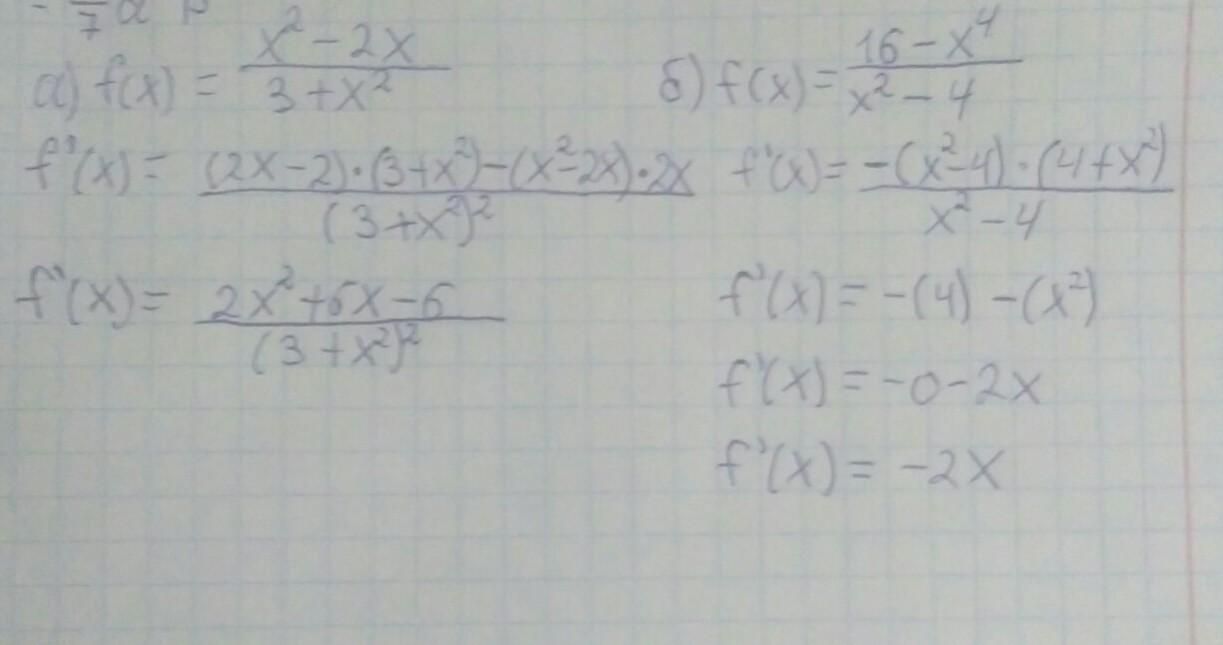 7
а) f(x) = (x² - 2x)/(3 + x²)
f'(x) = ((2x - 2)·(3 + x²) - (x² - 2x)·2x)/(3 + x²)²
f'(x) = (2x² + 6x - 6)/(3 + x²)²
б) f(x) = (16 - x⁴)/(x² - 4)
f'(x) = (-(x² - 4)·(4 + x²))/(x² - 4)
f'(x) = -(4) - (x²)
f'(x) = -0 - 2x
f'(x) = -2x